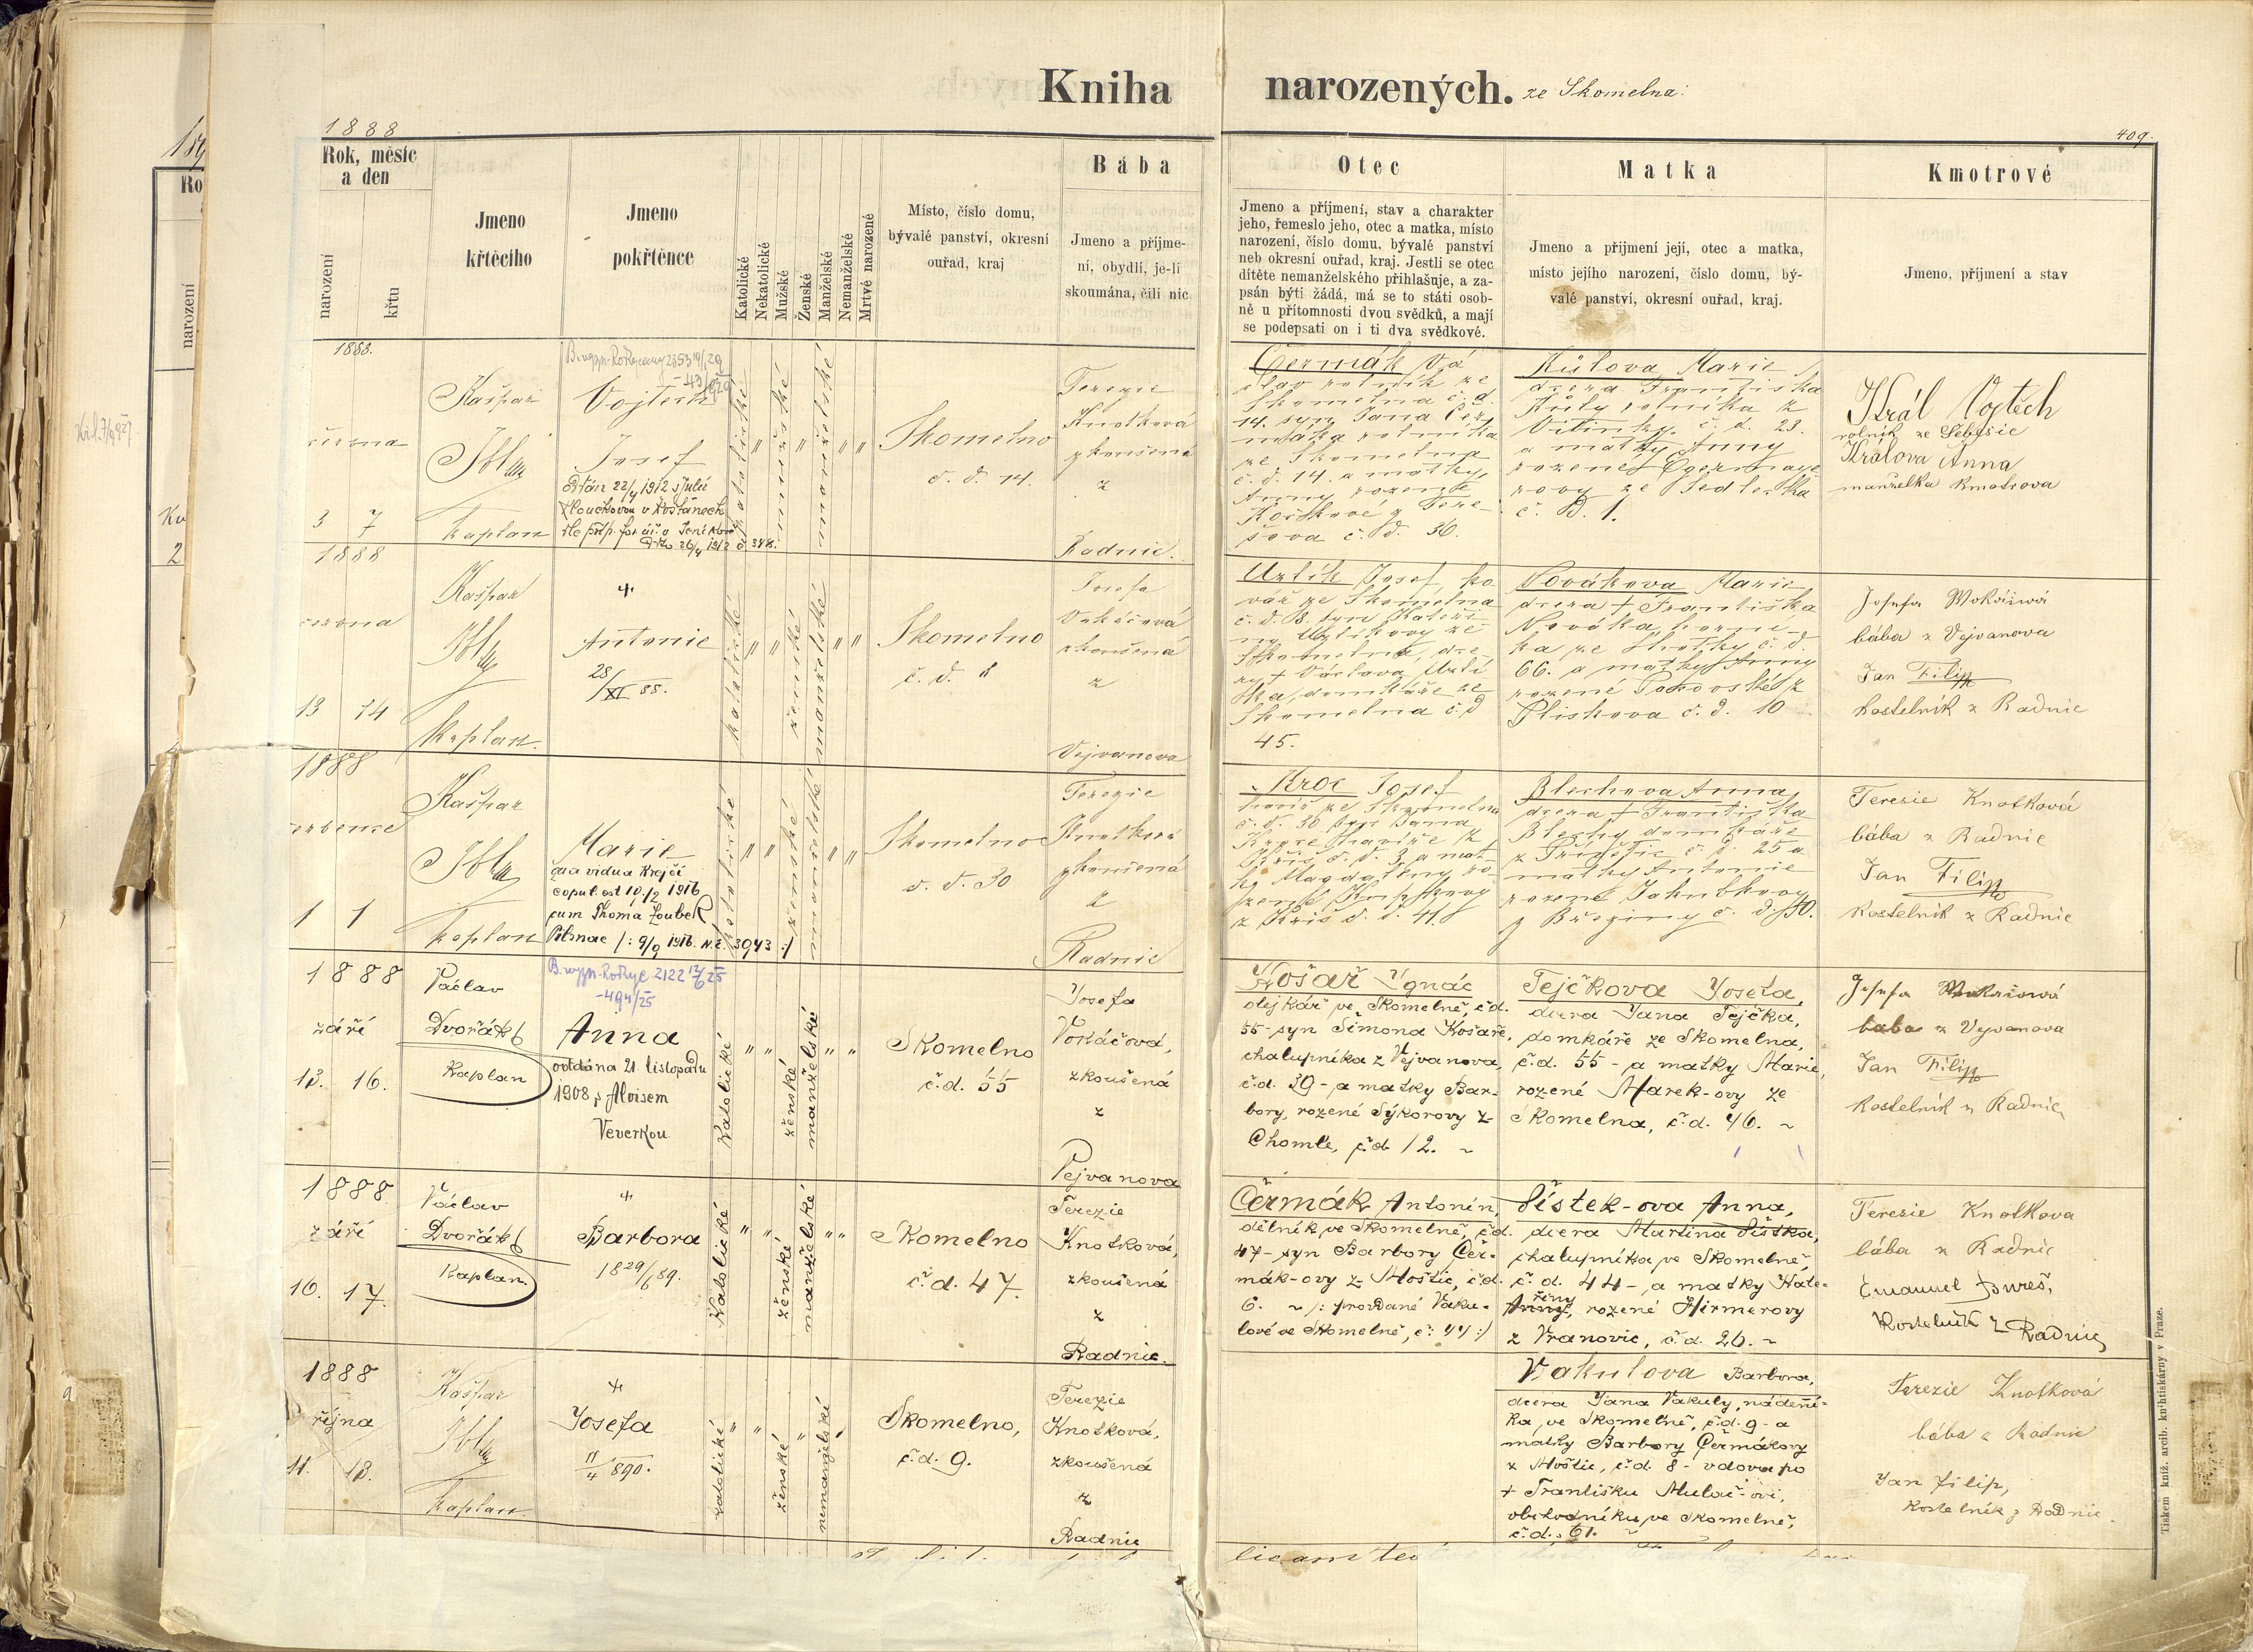 Kniha narozených. ze Skomelna:
1888
409.
Rok, měsíc a den
narození
křtu
Jmeno křtěcího
Jmeno pokřtěnce
Katolické
Nekatolické
Mužské
Ženské
Manželské
Nemanželské
Mrtvé narozené
Místo, číslo domu,
bývalé panství, okresní
ouřad, kraj
Bába
Jmeno a příjme-
ní, obydlí, je-li
skoumána, čili nic
Otec
Jmeno a příjmení, stav a charakter
jeho, řemeslo jeho, otec a matka, místo
narození, číslo domu, bývalé panství
neb okresní ouřad, kraj. Jestli se otec
dítěte nemanželského přihlašuje, a za-
psán býti žádá, má se to státi osob-
ně u přítomnosti dvou svědků, a mají
se podepsati on i ti dva svědkové.
Matka
Jmeno a přijmení její, otec a matka,
místo jejího narození, číslo domu, bý-
valé panství, okresní ouřad, kraj.
Kmotrové
Jmeno, příjmení a stav
1888.
června
3 7
Kašpar
Kaplan
Vojtěch
Josef
katolické
mužské
manželské
Skomelno
č. d. 14.
Terezie
Knotková
zkoušená
z
Radnic.
Čermák Vá
slav rolník ze
Skomelna č. d.
14. syn Jana Čer
máka rolníka
ze Skomelna
č. d. 14. a matky
Anny rozené
č. d. 36.
Kůlova Marie
dcera Františka
Kůly rolníka z
č. d. 23.
a matky Anny
rozené
rovy ze Sedlecka
č. d. 1.
Král Vojtěch
rolník ze Sebesic
Králova Anna
manželka kmotrova
1888
června
13 14
Kašpar
Kaplan.
Antonie
28/XI 88.
katolické
ženské
manželské
Skomelno
č. d. 8
Josefa
Vokáčová
zkoušená
z
Vejvanova
Uxlík Josef, ko
vář ze Skomelna
č. d. 8. syn Kateři
ny Uxlíkovy ze
Skomelna, dce
ry + Václava Uxlí
ka, domkáře ze
Skomelna č. d
45.
Nováková Marie
dcera + Františka
Nováka, horní
ka ze Lhotky č. d.
66. a matky Anny
rozené z
Pliskova č. d. 10
Josefa Wokáčová
bába z Vejvanova
Jan Filip
kostelník z Radnic
1888
července
1 1
Kašpar
Kaplan
Marie
qua vidua Krejčí
copul. est 10/12 1916
cum Thoma Zoubek
Pilsnae /: 9/9 1916. N. E. 3943 :/
katolické
ženské
manželské
Skomelno
č. d. 30
Terezie
Knotková
zkoušená
z
Radnic
Kroc Josef
havíř ze Skomelna
č. d. 30 syn Jana
Kroce havíře z
Kříš č. d. 3 a mat
ky Magdaleny ro
zené
z Kříš č. d. 41.
Blechova Anna
dcera + Františka
Blechy domkáře
z Přívětic č. d. 25 a
matky Antonie
rozené Jakubkovy
z Březiny č. d. 50.
Terezie Knotková
bába z Radnic
Jan Filip
kostelník z Radnic
1888
září
13. 16.
Václav
Dvořák
Kaplan
B. vyp. Rokyc. 2122 12/6 25
-494/25
Anna
oddána 21. listopadu
1908, s Aloisem
Veverkou
katolické
ženské
manželské
Skomelno
č.d. 55
Josefa
Vokáčová,
zkoušená
z
Vejvanova
Košař Ignác
olejkář ve Skomelně, č.d.
55 - syn Šimona Košaře,
chalupníka z Vejvanova,
č.d. 39 - a matky Bar-
bory, rozené Sýkorovy z
Chomle, č.d 12. ~
Tejčkova Josefa,
dcera Jana Tejčka,
domkáře ze Skomelna,
č.d. 55 - a matky Marie,
rozené Marek-ovy ze
Skomelna, č.d. 46. ~
Josefa Wokáčová
baba z Vejvanova
Jan Filip
kostelník z Radnic
1888
září
16. 17.
Václav
Dvořák
Kaplan
Barbora
18 29/6 89.
katolické
ženské
manželské
Skomelno
č.d. 47.
Terezie
Knotková,
zkoušená
z
Radnic.
Čermák Antonín,
dělník ve Skomelně, č.d.
47 - syn Barbory Čer-
mák-ovy z Moštic, č.d.
6. ~ /: provdané Vaku-
lové ve Skomelně, č: 44 :/
Šístek-ova Anna,
dcera Martina Šístka,
chalupníka ve Skomelně,
č. d. 44 - a matky Kate-
řiny
Anny, rozené Hirmerovy
z Vranovic, č.d. 26. ~
Terezie Knotkova
bába z Radnic
Emanuel Bureš,
kostelník z Radnic
1888
října
11. 13.
Kašpar
Kaplan
Josefa
11/4 890.
katolické
ženské
nemanželské
Skomelno,
č.d. 9.
Terezie
Knotková,
zkoušená
z
Radnic
Vakulova Barbora,
dcera Jana Vakuly, nádení-
ka, ve Skomelně, č.d. 9 - a
matky Barbory Čermákovy
z Moštic, č.d. 8 - vdova po
+ Františku Mulač-ovi,
obchodníku ve Skomelně,
č.d., 61.
Terezie Knotková
bába z Radnic
Jan Filip,
kostelník z Radnic.
Tiskem kníž. arcib. knihtiskárny v Praze.